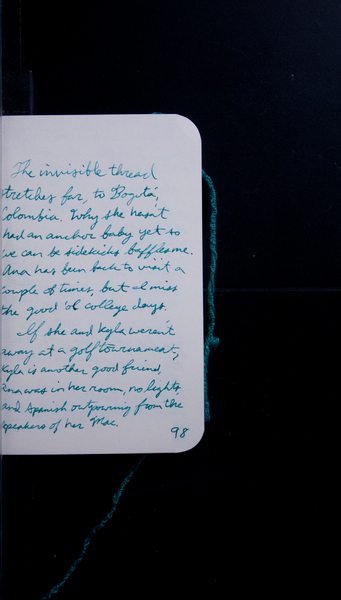 The invisible thread
stretches far, to Bogotá,
Colombia. Why she hasn't
had an anchor baby yet so
we can be sidekicks baffles me.
Ana has been back to visit a
couple of times, but I miss
the good 'ol college days.
If she and Kyla weren't
away at a golf tournament,
Kyla is another good friend,
Ana was in her room, no lights,
and Spanish outpouring from the
speakers of her Mac.
98